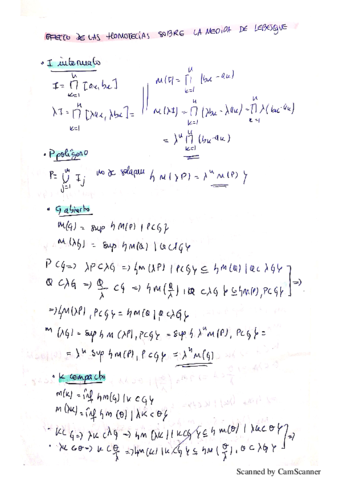 EFECTO DE LAS HOMOTECIAS SOBRE LA MEDIDA DE LEBESGUE
· I intervalo
I = ∏ₖ₌₁ⁿ [aₖ, bₖ] m(I) = ∏ₖ₌₁ⁿ (bₖ - aₖ)
λI = ∏ₖ₌₁ⁿ [λaₖ, λbₖ] = m(λI) = ∏ₖ₌₁ⁿ (λbₖ - λaₖ) = ∏ₖ₌₁ⁿ λ(bₖ - aₖ)
= λⁿ ∏ₖ₌₁ⁿ (bₖ - aₖ)
· P polígono
P = ⋃ⱼ₌₁ⁿ Iⱼ no se solapan { m(λP) = λⁿ m(P) }
· G abierto
m(G) = sup { m(P) | P⊂G }
m(λG) = sup { m(Q) | Q⊂λG }
P⊂G => λP⊂λG => { m(λP) | P⊂G } ⊆ { m(Q) | Q⊂λG }
Q⊂λG => Q/λ ⊂G => { m(Q/λ) | Q⊂λG } ⊆ { m(P), P⊂G } =>
=> { m(λP), P⊂G } = { m(Q) | Q⊂λG }
m(λG) = sup { m(λP), P⊂G } = sup { λⁿ m(P), P⊂G } =
= λⁿ sup { m(P), P⊂G } = λⁿ m(G)
· K compacto
m(K) = inf { m(G) | K⊂G }
m(λK) = inf { m(θ) | λK⊂θ }
· K⊂G => λK⊂λG => { m(λK) | K⊂G } ⊆ { m(θ) | λK⊂θ } =>
· λK⊂θ => K⊂ θ/λ
Scanned by CamScanner